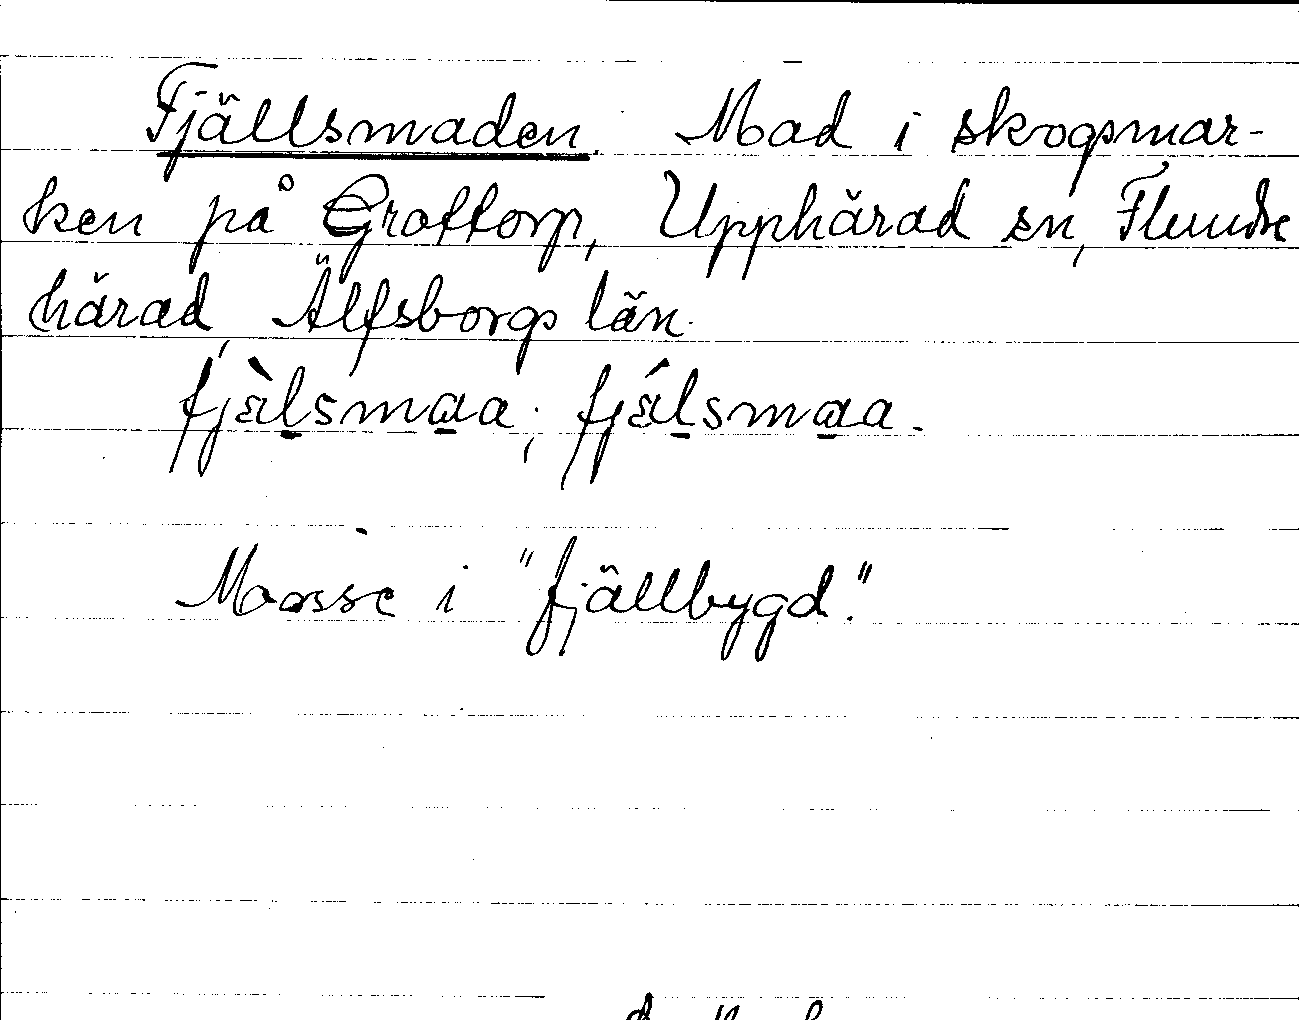 Fjällsmaden. Mad i skogsmar-
ken på Groftorp, Upphärad sn, Flundre
härad, Älfsborgs län.
fjä̀l̠sma̠a; fjä́l̠sma̠a.
Mosse i "fjällbygd."